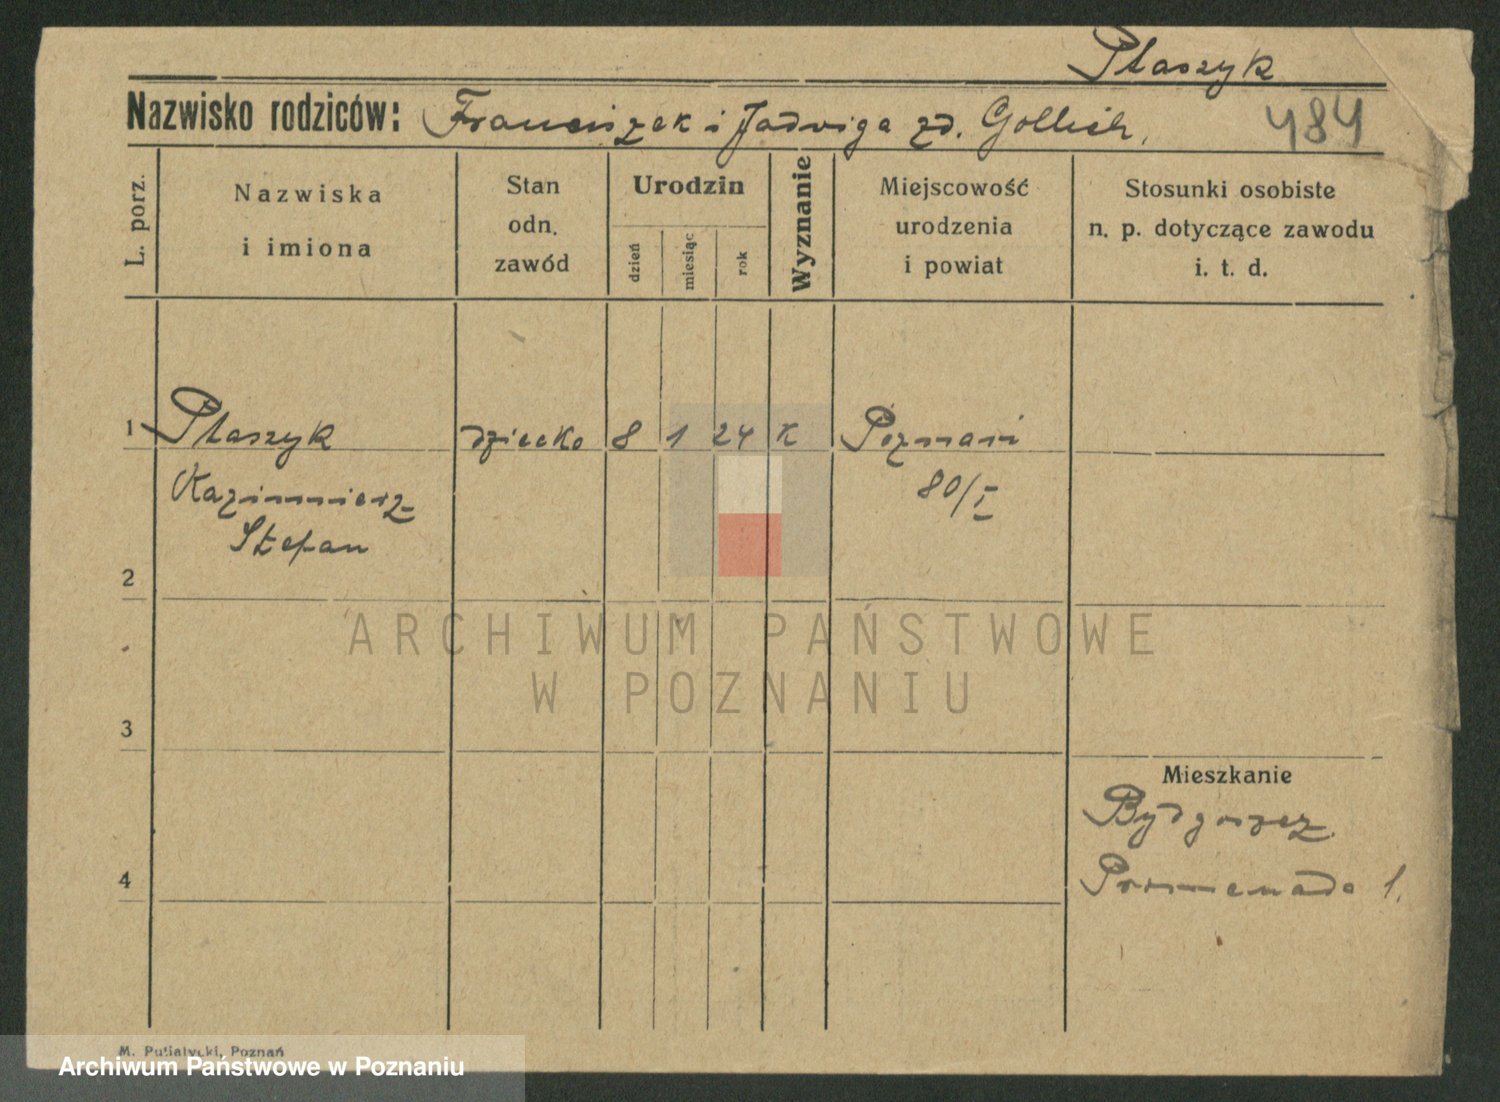 Ptaszyk
Nazwisko rodziców: Franciszek i Jadwiga zd. Gollisch,
484
L. porz.
Nazwiska
i imiona
Stan
odn.
zawód
Urodzin
dzień
miesiąc
rok
Wyznanie
Miejscowość
urodzenia
i powiat
Stosunki osobiste
n. p. dotyczące zawodu
i. t. d.
1 Ptaszyk dziecko 8 1 24 K Poznań
Kazimierz 80/I
Stefan
2
ARCHIWUM PAŃSTWOWE
W POZNANIU
3
Mieszkanie
Bydgoszcz
4 Promenada 1.
M. Putiatycki, Poznań
Archiwum Państwowe w Poznaniu